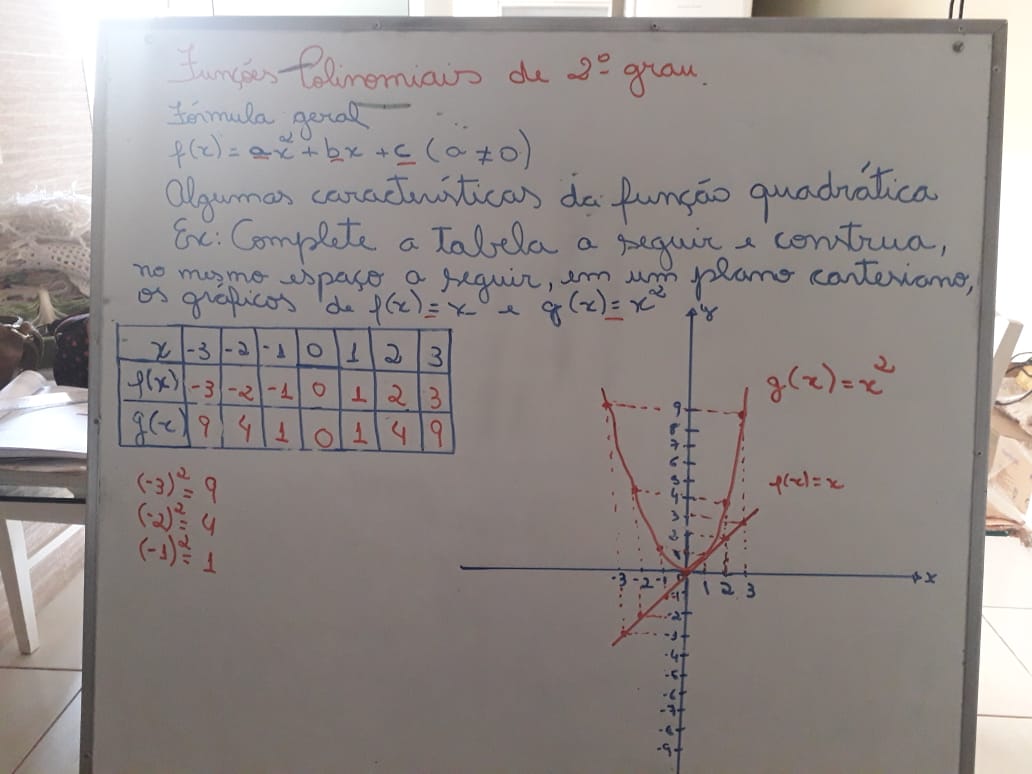 Funções Polinomiais de 2º grau.
Fórmula geral
f(x) = ax² + bx + c (a ≠ 0)
Algumas características da função quadrática
Ex: Complete a tabela a seguir e construa,
no mesmo espaço a seguir, em um plano cartesiano,
os gráficos de f(x) = x e g(x) = x²
x -3 -2 -1 0 1 2 3
f(x) -3 -2 -1 0 1 2 3
g(x) 9 4 1 0 1 4 9
(-3)² = 9
(-2)² = 4
(-1)² = 1
y
g(x) = x²
9
8
7
6
5
4
3
2
1
f(x) = x
-3 -2 -1 0 1 2 3 x
-1
-2
-3
-4
-5
-6
-7
-8
-9